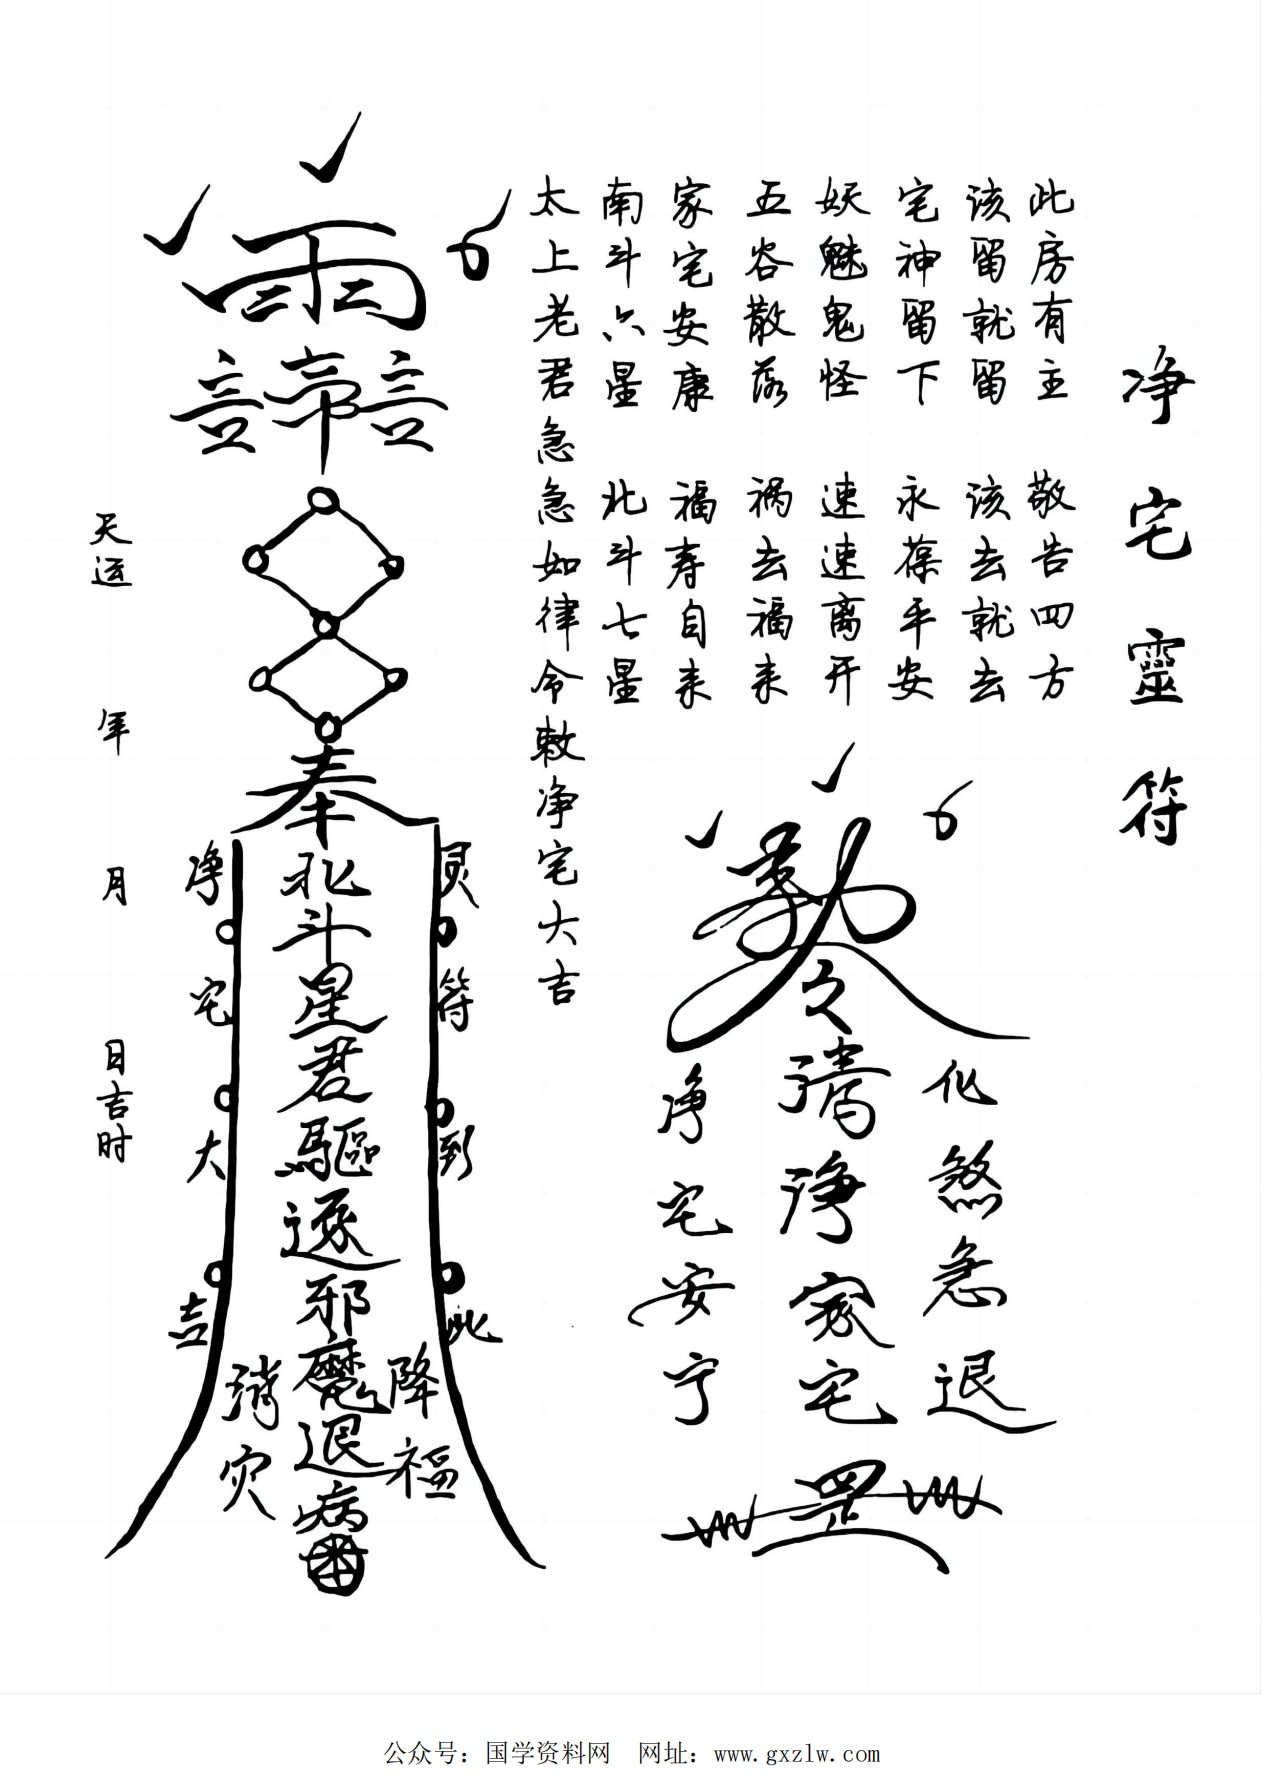 净宅靈符
此房有主 敬告四方
该留就留 该去就去
宅神留下 永葆平安
妖魅鬼怪 速速离开
五谷散落 祸去福来
家宅安康 福寿自来
南斗六星 北斗七星
太上老君急急如律令敕净宅大吉
化煞急退
清净家宅罡
净宅安宁
雨
奉北斗星君驅逐邪魔退病
灵符到此
降福
净宅大吉
消灾
天运 年 月 日吉时
公众号：国学资料网 网址：www.gxzlw.com